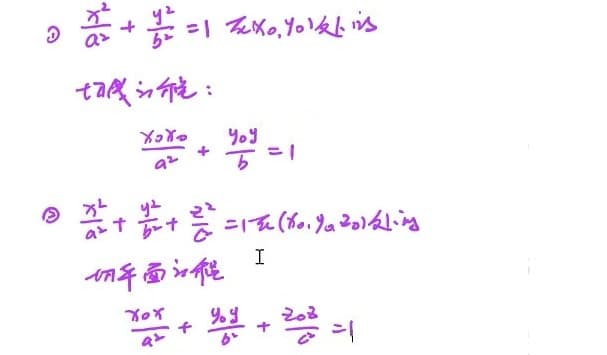 ① x²/a² + y²/b² = 1 在(x₀, y₀)处的
切线方程：
x₀x₀/a² + y₀y/b = 1
② x²/a² + y²/b² + z²/c² = 1 在(x₀, y₀, z₀)处的
切平面方程
x₀x/a² + y₀y/b² + z₀z/c² = 1